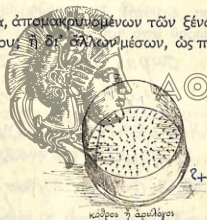 α, ἀπομακρυνομένων τῶν ξένω
ου; ἢ δι' ἄλλων μέσων, ὡς π
ΑΘ
κόθρος ἢ ἀρυλόγος